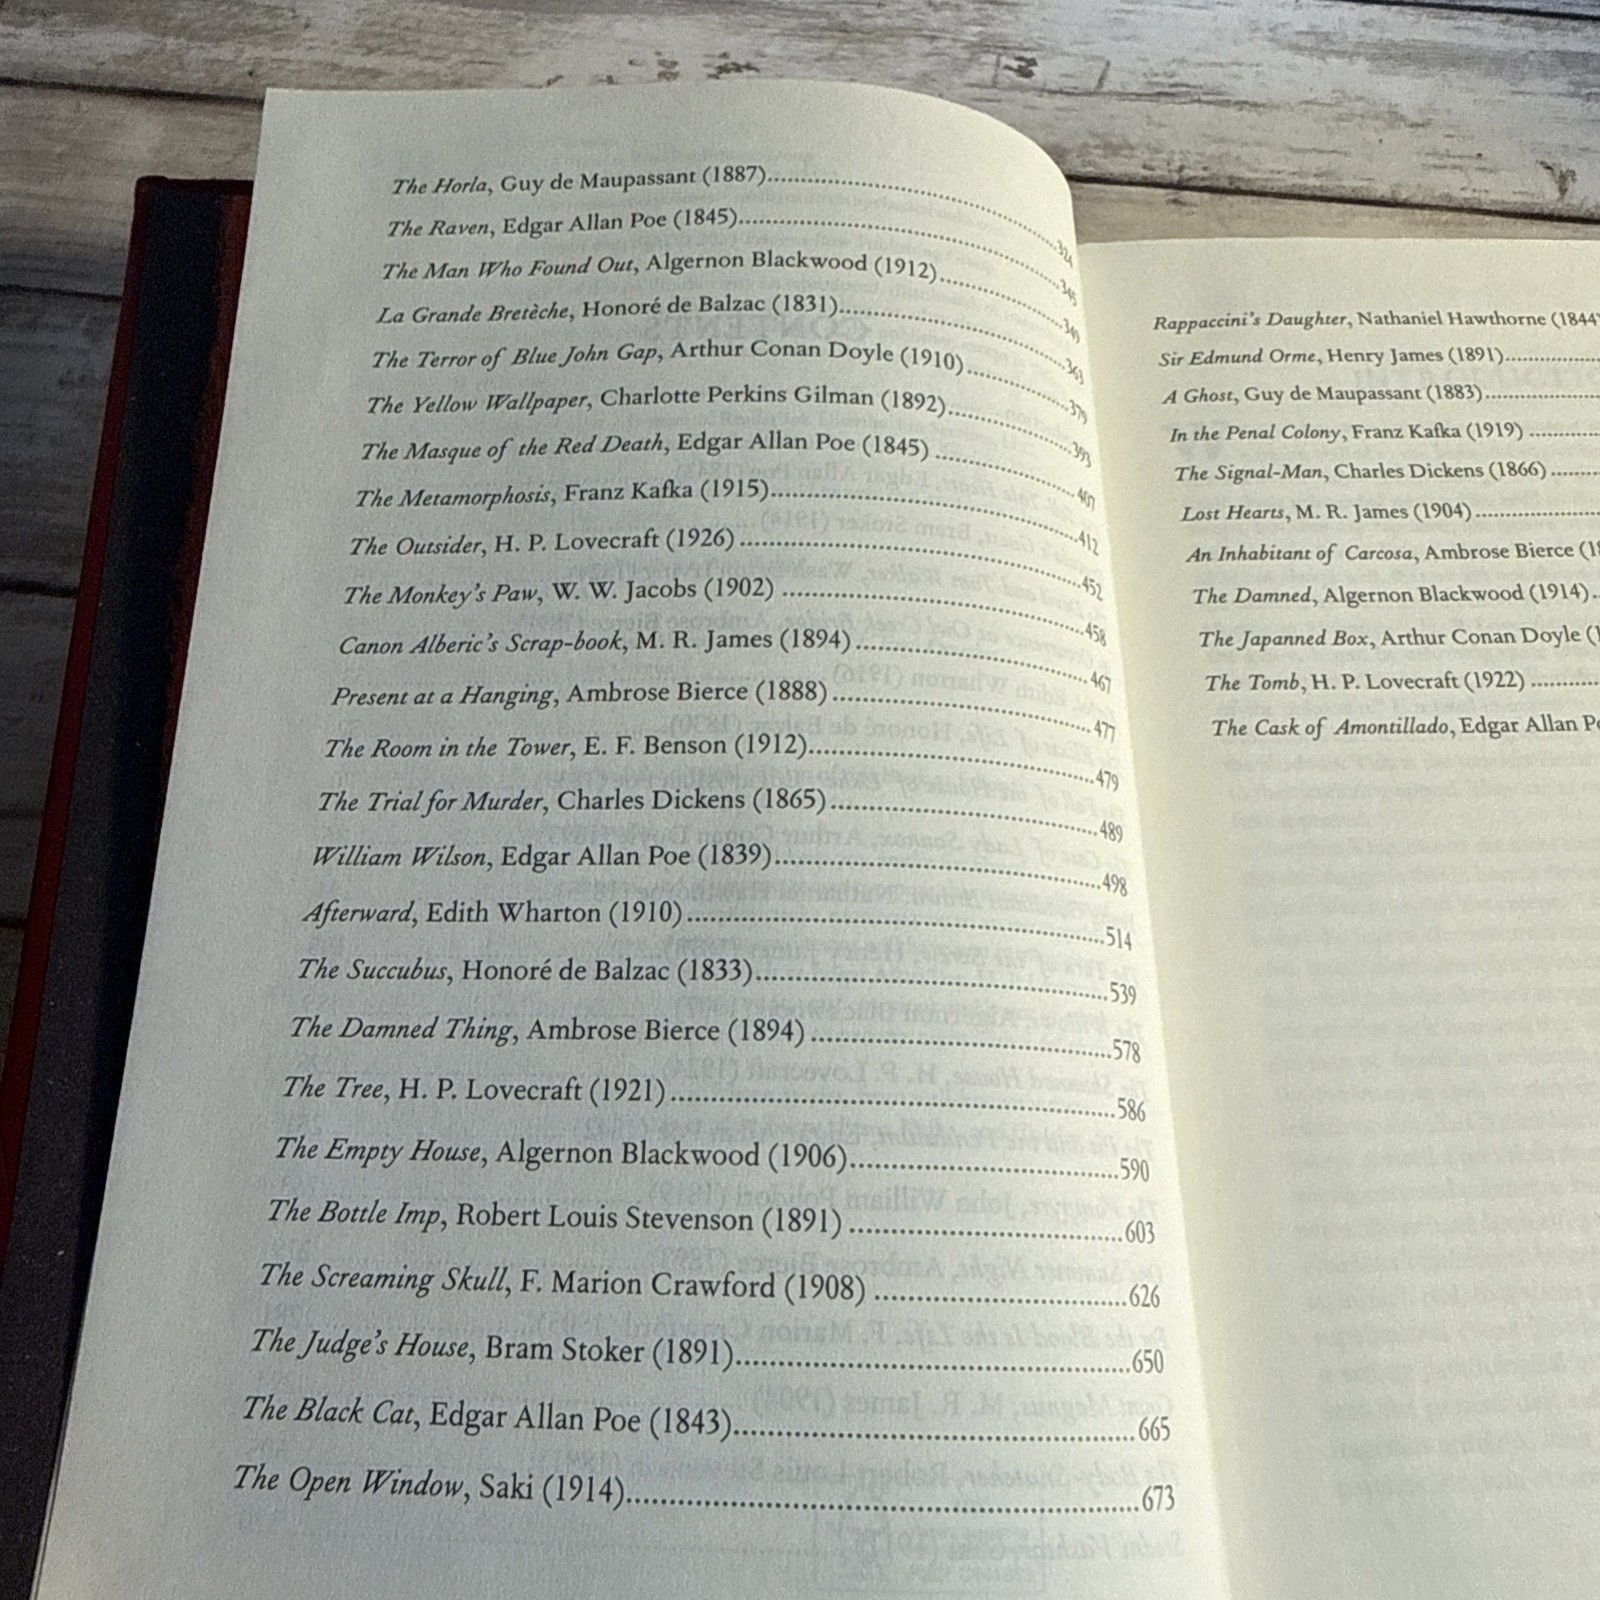 The Horla, Guy de Maupassant (1887)....................324
The Raven, Edgar Allan Poe (1845)....................345
The Man Who Found Out, Algernon Blackwood (1912)....................349
La Grande Bretèche, Honoré de Balzac (1831)....................363
The Terror of Blue John Gap, Arthur Conan Doyle (1910)....................379
The Yellow Wallpaper, Charlotte Perkins Gilman (1892)....................393
The Masque of the Red Death, Edgar Allan Poe (1845)....................407
The Metamorphosis, Franz Kafka (1915)....................412
The Outsider, H. P. Lovecraft (1926)....................452
The Monkey's Paw, W. W. Jacobs (1902)....................458
Canon Alberic's Scrap-book, M. R. James (1894)....................467
Present at a Hanging, Ambrose Bierce (1888)....................477
The Room in the Tower, E. F. Benson (1912)....................479
The Trial for Murder, Charles Dickens (1865)....................489
William Wilson, Edgar Allan Poe (1839)....................498
Afterward, Edith Wharton (1910)....................514
The Succubus, Honoré de Balzac (1833)....................539
The Damned Thing, Ambrose Bierce (1894)....................578
The Tree, H. P. Lovecraft (1921)....................586
The Empty House, Algernon Blackwood (1906)....................590
The Bottle Imp, Robert Louis Stevenson (1891)....................603
The Screaming Skull, F. Marion Crawford (1908)....................626
The Judge's House, Bram Stoker (1891)....................650
The Black Cat, Edgar Allan Poe (1843)....................665
The Open Window, Saki (1914)....................673
Rappaccini's Daughter, Nathaniel Hawthorne (1844
Sir Edmund Orme, Henry James (1891)..........
A Ghost, Guy de Maupassant (1883)..........
In the Penal Colony, Franz Kafka (1919)..........
The Signal-Man, Charles Dickens (1866)..........
Lost Hearts, M. R. James (1904)..........
An Inhabitant of Carcosa, Ambrose Bierce
The Damned, Algernon Blackwood (1914)..
The Japanned Box, Arthur Conan Doyle
The Tomb, H. P. Lovecraft (1922)..........
The Cask of Amontillado, Edgar Allan